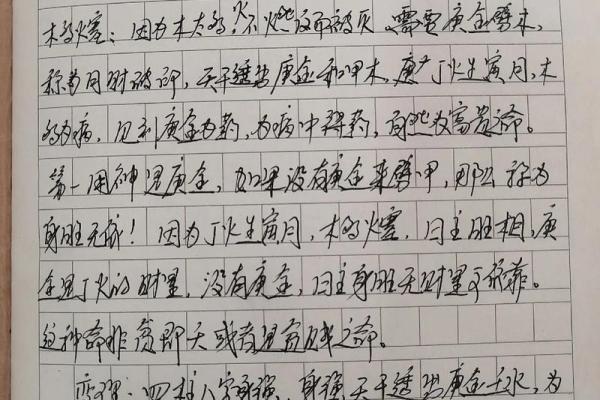 木多火熄：因为木太多，火不燃反而被灭，需要庚金劈木，
称为用财破印，天干透出庚金和甲木，庚，丁火生寅月，木
多为病，见到庚金为药，为病中得药，自然为富贵命。
第一用神是庚金，如果没有庚金来劈甲，那么称为
身旺无依！因为丁火生寅月，木多火熄，日主旺相，庚
金是丁火的财星，没有庚金，日主身旺无财星可依靠。
这种命非贫即夭或者是贫贱之命。
四柱八字身强，身强天干透出庚金壬水，为